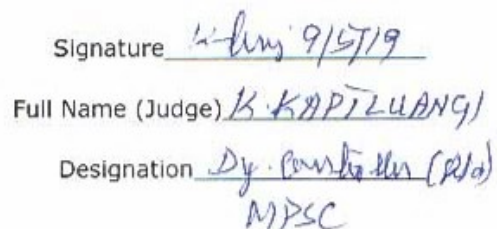 Signature 9/5/19
Full Name (Judge) K. KAPILUANGI
Designation Dy. Controller (Rtd)
MPSC